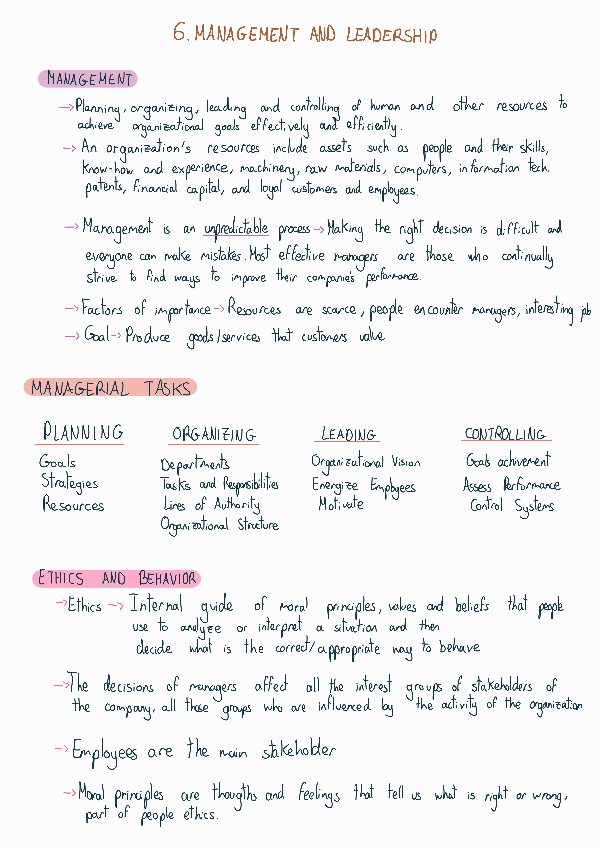 6. MANAGEMENT AND LEADERSHIP
MANAGEMENT
→ Planning, organizing, leading and controlling of human and other resources to
achieve organizational goals effectively and efficiently.
→ An organization's resources include assets such as people and their skills,
know-how and experience, machinery, raw materials, computers, information tech.
patents, financial capital, and loyal customers and employees.
→ Management is an unpredictable process → Making the right decision is difficult and
everyone can make mistakes. Most effective managers are those who continually
strive to find ways to improve their companie's performance.
→ Factors of importance → Resources are scarce, people encounter managers, interesting job
→ Goal → Produce goods/services that customers value
MANAGERIAL TASKS
PLANNING ORGANIZING LEADING CONTROLLING
Goals Departments Organizational Vision Goals achiverent
Strategies Tasks and Responsibilities Energize Employees Assess Performance
Resources Lires of Authority Motivate Control Systems
Organizational Structure
ETHICS AND BEHAVIOR
→ Ethics → Internal guide of moral principles, values and beliefs that people
use to analyze or interpret a situation and then
decide what is the correct/appropriate way to behave
→ The decisions of managers affect all the interest groups of stakeholders of
the company, all those groups who are influenced by the activity of the organization
→ Employees are the main stakeholder
→ Moral principles are thougths and feelings that tell us what is right or wrong,
part of people ethics.